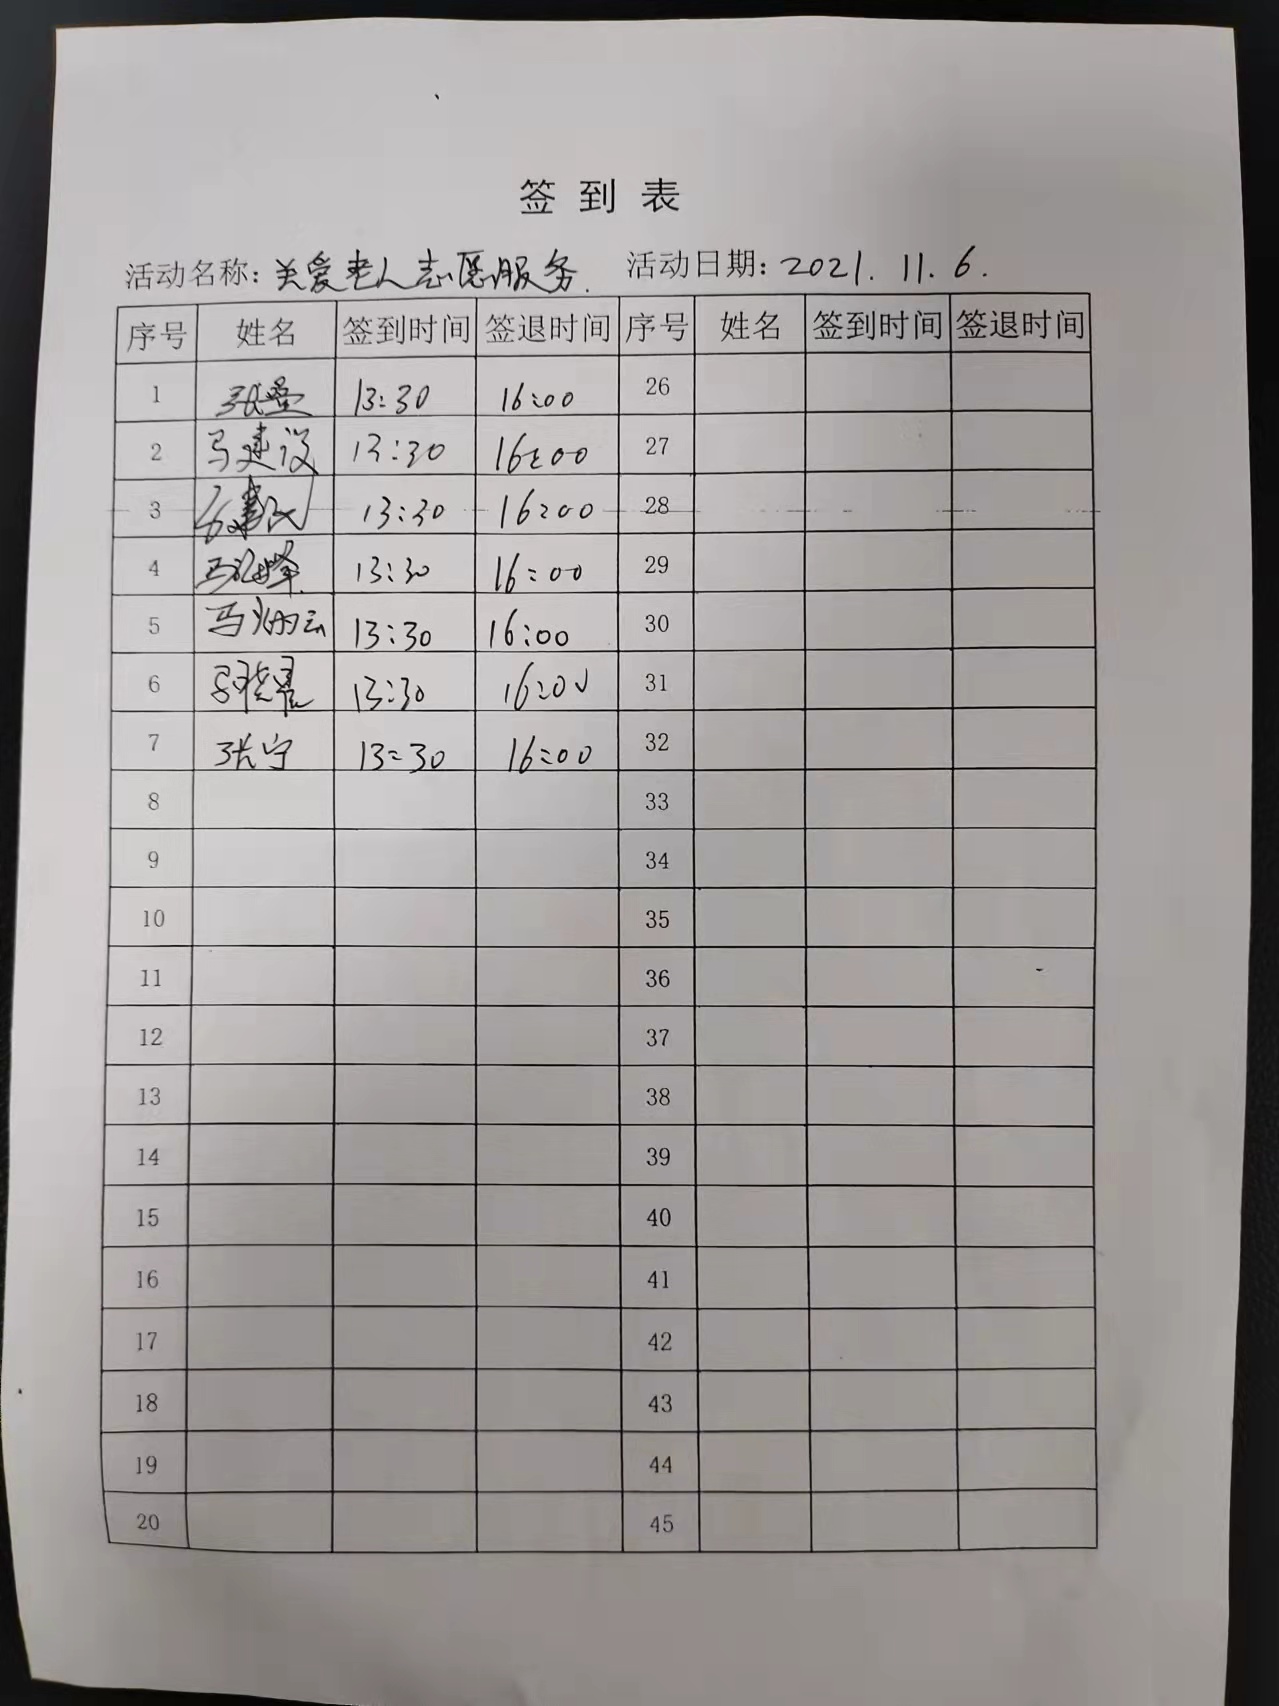 签到表
活动名称：关爱老人志愿服务. 活动日期：2021.11.6.
序号 姓名 签到时间 签退时间 序号 姓名 签到时间 签退时间
1 13:30 16:00 26
2 马建设 13:30 16:00 27
3 13:30 16:00 28
4 13:30 16:00 29
5 13:30 16:00 30
6 13:30 16:00 31
7 张宁 13:30 16:00 32
8 33
9 34
10 35
11 36
12 37
13 38
14 39
15 40
16 41
17 42
18 43
19 44
20 45